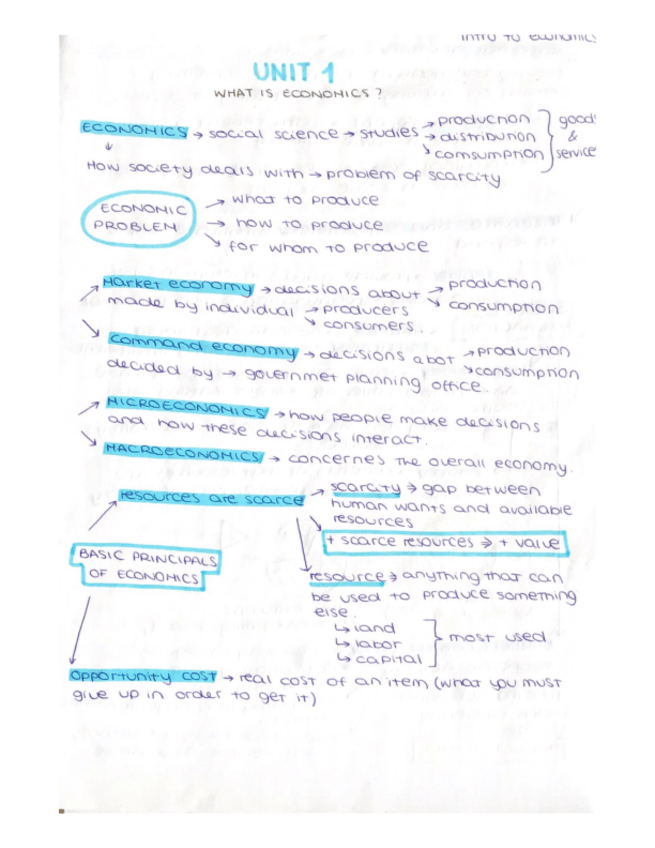 Intro to economics
UNIT 1
WHAT IS ECONOMICS?
ECONOMICS → social science → studies → production
→ distribution
↘ comsumption
good'
&
service
↓
How society deals with → problem of scarcity
ECONOMIC
PROBLEM
↗ what to produce
→ how to produce
↘ for whom to produce
Market economy → decisions about → production
↘ consumption
made by individual → producers
↘ consumers.
command economy → decisions abot → production
↘ consumption
decided by → governmet planning office.
MICROECONOMICS → how people make decisions
and how these decisions interact.
MACROECONOMICS → concernes the overall economy.
resources are scarce → scarcity → gap between
human wants and available
resources
+ scarce resources → + value
BASIC PRINCIPALS
OF ECONOMICS
resource → anything that can
be used to produce something
else.
↳ land
↳ labor
↳ capital
most used
opportunity cost → real cost of an item (what you must
give up in order to get it)